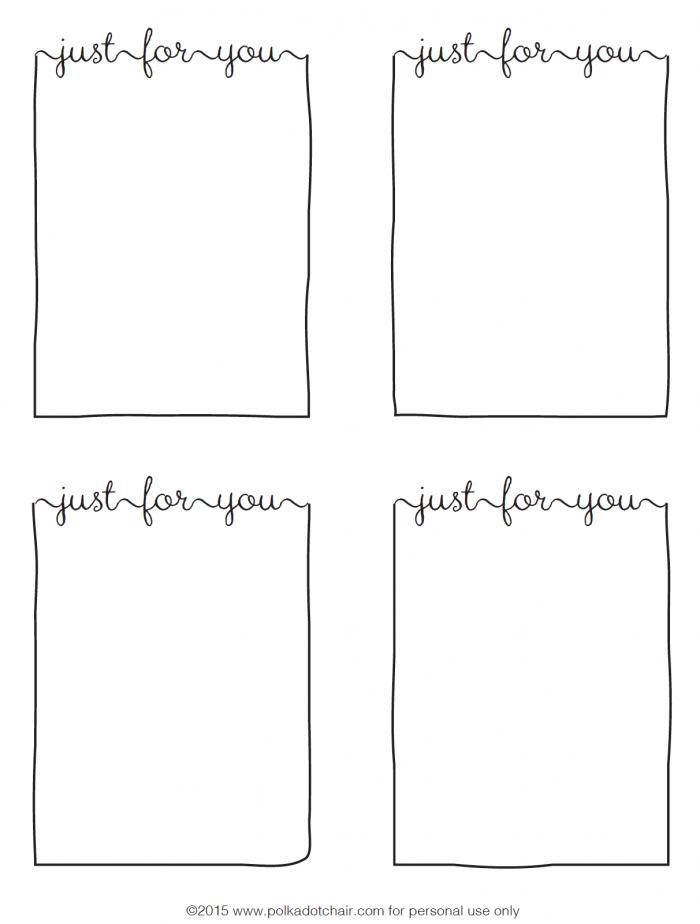 just for you
just for you
just for you
just for you
©2015 www.polkadotchair.com for personal use only